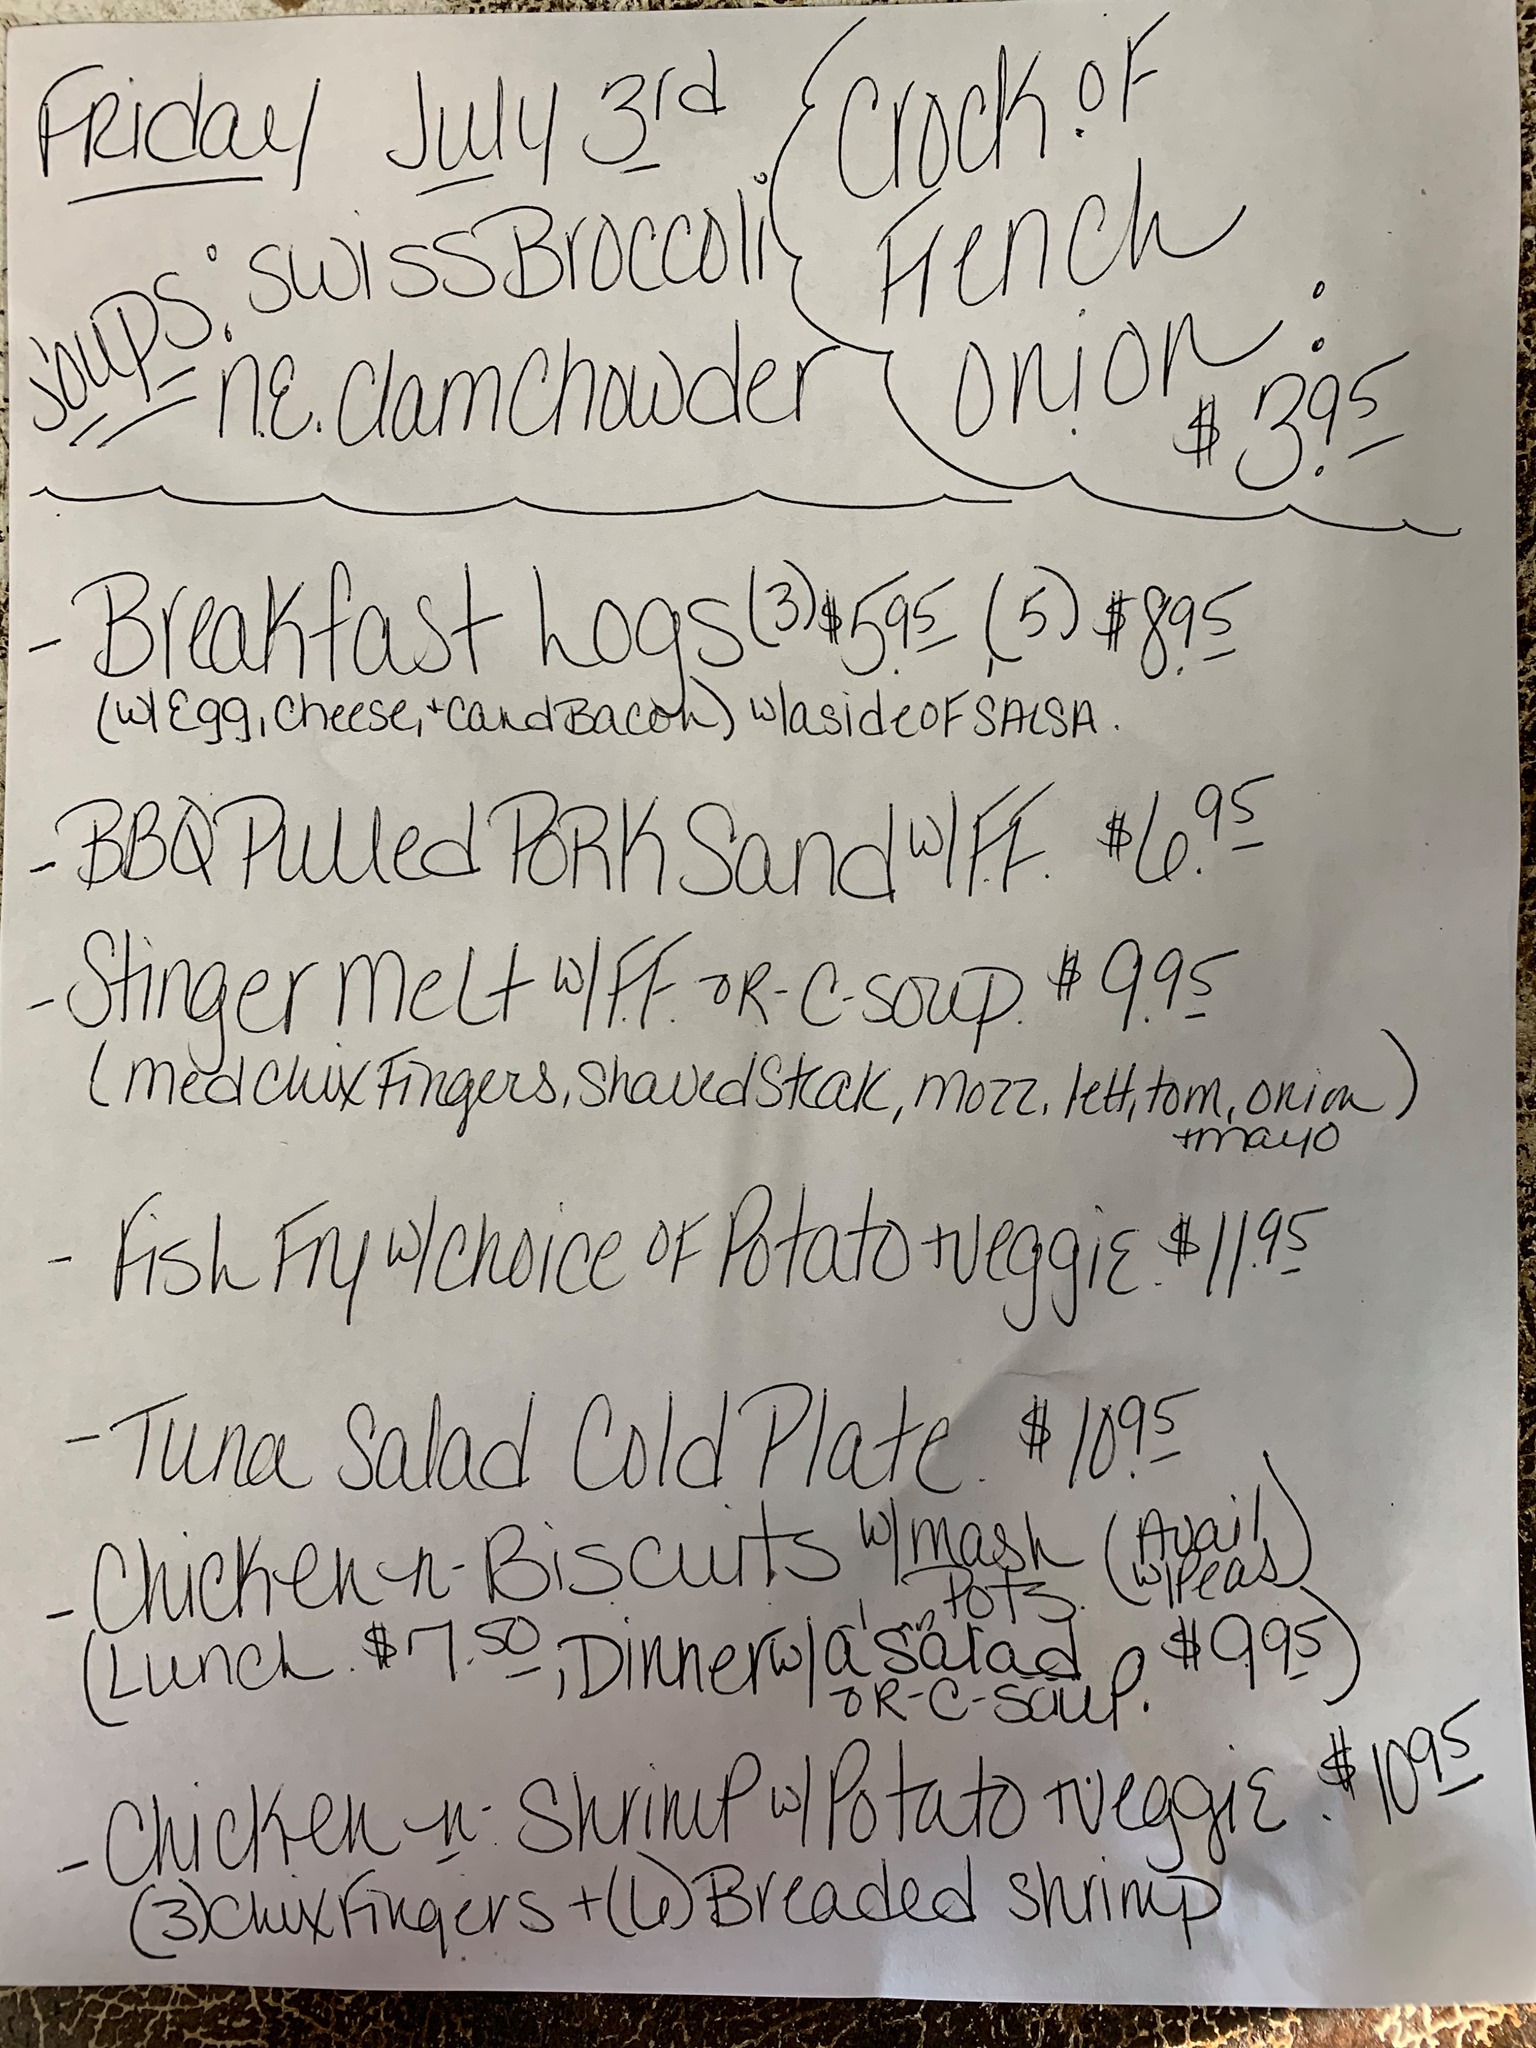 Friday July 3rd
Soups: Swiss Broccoli
N.E. Clam Chowder
Crock of
French
Onion:
$3.95
- Breakfast Logs (3) $5.95 (5) $8.95
(w/ Egg, Cheese, + Cand Bacon) w/ a side of SALSA.
- BBQ Pulled Pork Sand w/ F.F. $6.95
- Stinger Melt w/ F.F. or - C - Soup. $9.95
(Med Chix Fingers, Shaved Steak, Mozz. lett, tom, onion)
+ mayo
- Fish Fry w/ Choice of Potato + Veggie. $11.95
- Tuna Salad Cold Plate. $10.95
- Chicken -n- Biscuits w/ mash Pots. (Avail w/ Peas)
(Lunch. $7.50, Dinner w/ a Salad or - C - Soup. $9.95)
- Chicken -n- Shrimp w/ Potato + Veggie. $10.95
(3) Chix Fingers + (6) Breaded Shrimp